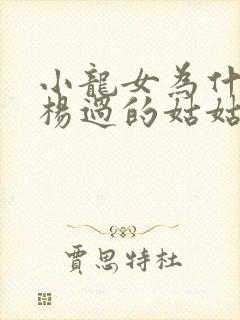 小龍女為什
楊過的姑姑
賈思特杜